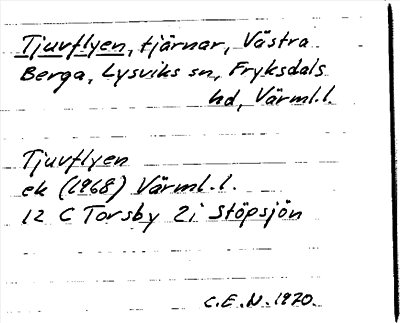 Tjuvflyen, tjärnar, Västra
Berga, Lysviks sn, Fryksdals
hd, Värml.l.
Tjuvflyen
ek (1968) Värml.l.
12 C Torsby 2i Stöpsjön
C.E.N. 1970.